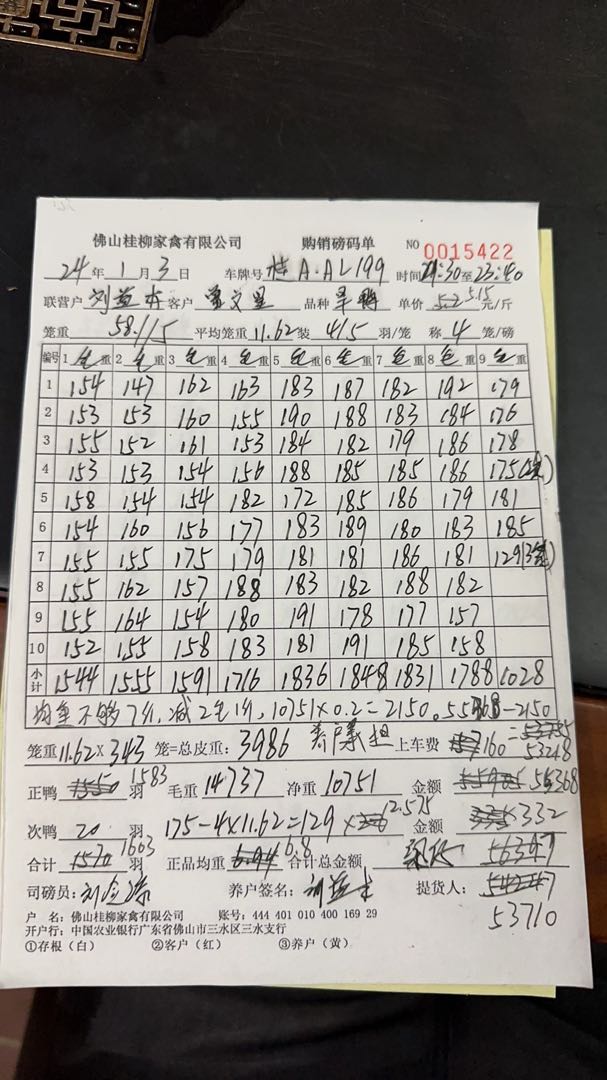 佛山桂柳家禽有限公司 购销磅码单 NO 0015422
24 年 1 月 3 日 车牌号 桂A·AL199 时间 21:30 至 23:40
联营户 客户 品种 旱鸭 单价 5.2 5.15 元/斤
笼重 58.1/5 平均笼重 11.62 装 4/5 羽/笼 称 4 笼/磅
编号 1 毛 重 2 毛 重 3 毛 重 4 毛 重 5 毛 重 6 毛 重 7 毛 重 8 毛 重 9 毛 重
1 154 147 162 163 183 187 182 192 179
2 153 153 160 155 190 188 183 184 176
3 155 152 161 153 184 182 179 186 178
4 153 153 154 156 188 185 185 186 175
5 158 154 154 182 172 185 186 179 181
6 154 160 156 177 183 189 180 183 185
7 155 155 175 179 181 181 186 181 129(3笼)
8 155 162 157 188 183 182 188 182
9 155 164 154 180 191 178 177 157
10 152 155 158 183 181 191 185 158
小计 1544 1555 1591 1716 1836 1848 1831 1788 1028
均重不够7斤,减2毛1斤,10751×0.2=2150。55368-2150
笼重 11.62×343 笼=总皮重: 3986 养户承担 上车费 160 =
53248
正鸭 1583 羽 毛重 14737 净重 10751 金额 55368
次鸭 20 羽 175-4×11.62=129× 2.575 金额 332
合计 1663 羽 正品均重 6.8 合计总金额 56347
司磅员: 养户签名: 提货人:
53710
户 名: 佛山桂柳家禽有限公司 账号: 444 401 010 400 169 29
开户行: 中国农业银行广东省佛山市三水区三水支行
①存根(白) ②客户(红) ③养户(黄)